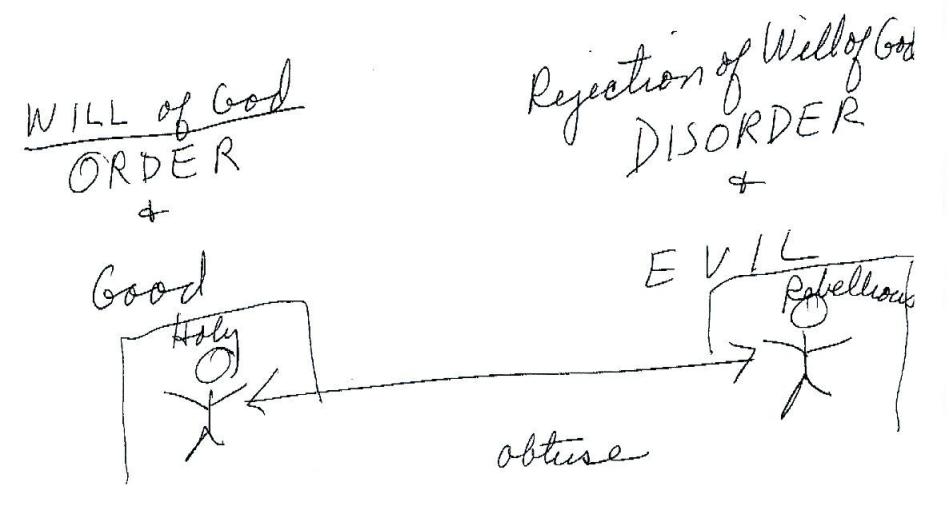 WILL of God
ORDER
&
Good
Holy
Rejection of Will of God
DISORDER
&
EVIL
Rebellious
obtuse